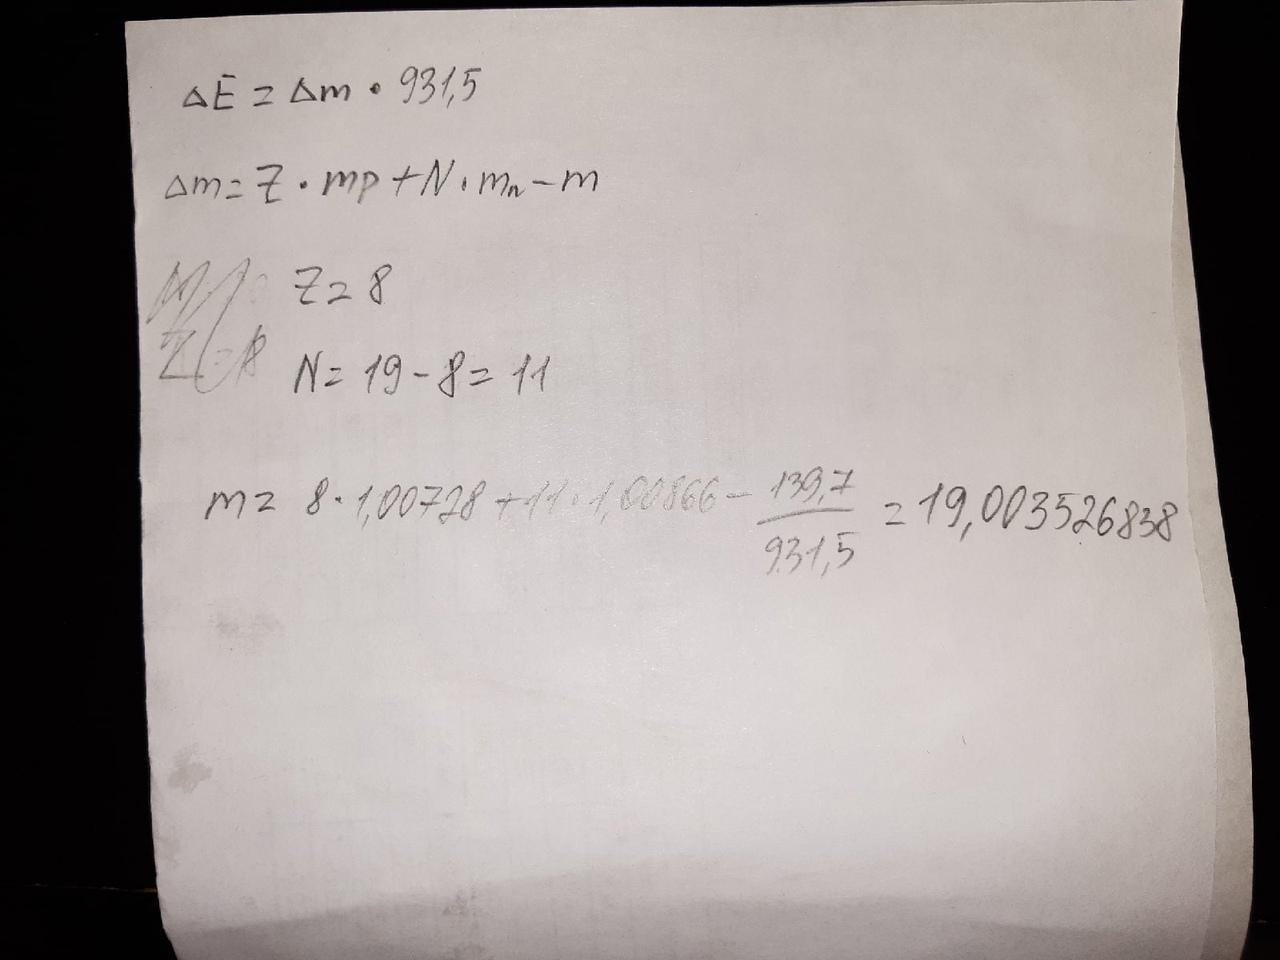 ΔE = Δm · 931,5
Δm = Z · mp + N · mn - m
Z = 8
N = 19 - 8 = 11
m = 8 · 1,00728 + 11 · 1,00866 - 139,7/931,5 = 19,003526838